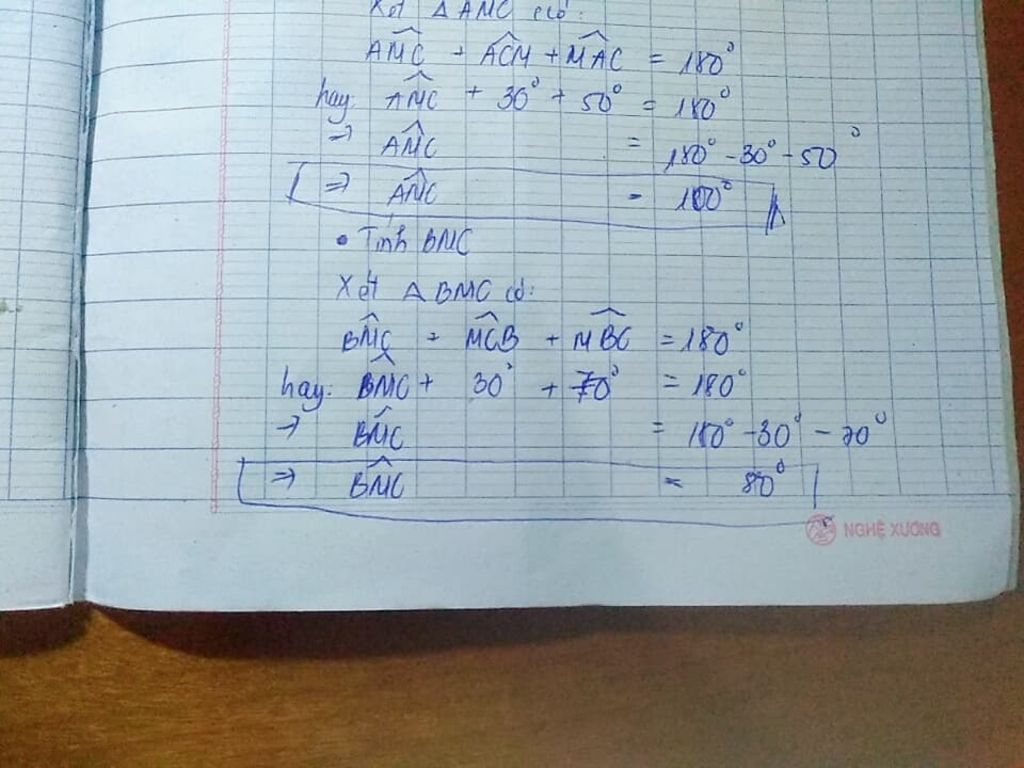 Xét △ AMC có:
AMC + ACM + MAC = 180°
hay: AMC + 30° + 50° = 180°
⇒ AMC = 180° - 30° - 50°
⇒ AMC = 100°
• Tính BMC
Xét △ BMC có:
BMC + MCB + MBC = 180°
hay: BMC + 30° + 70° = 180°
→ BMC = 180° - 30° - 70°
⇒ BMC = 80°
NGHỆ XƯƠNG